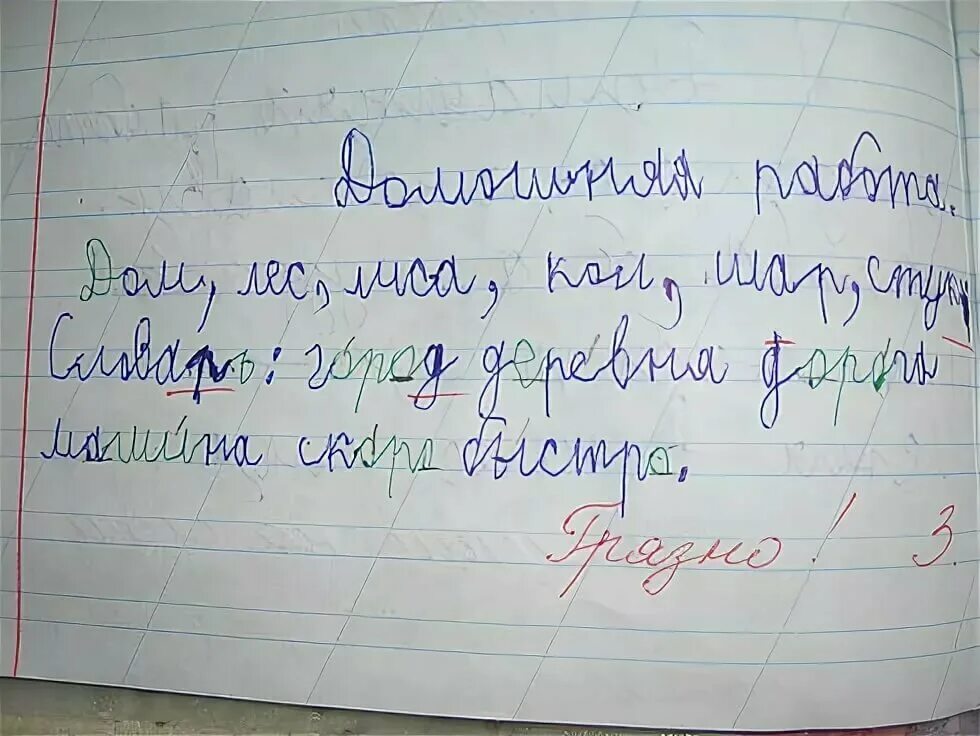 Домашняя работа.
Дом, лес, лиса, кол, шар, стук
Словарь: город деревня дорога
машина скоро быстро.
Грязно! 3.